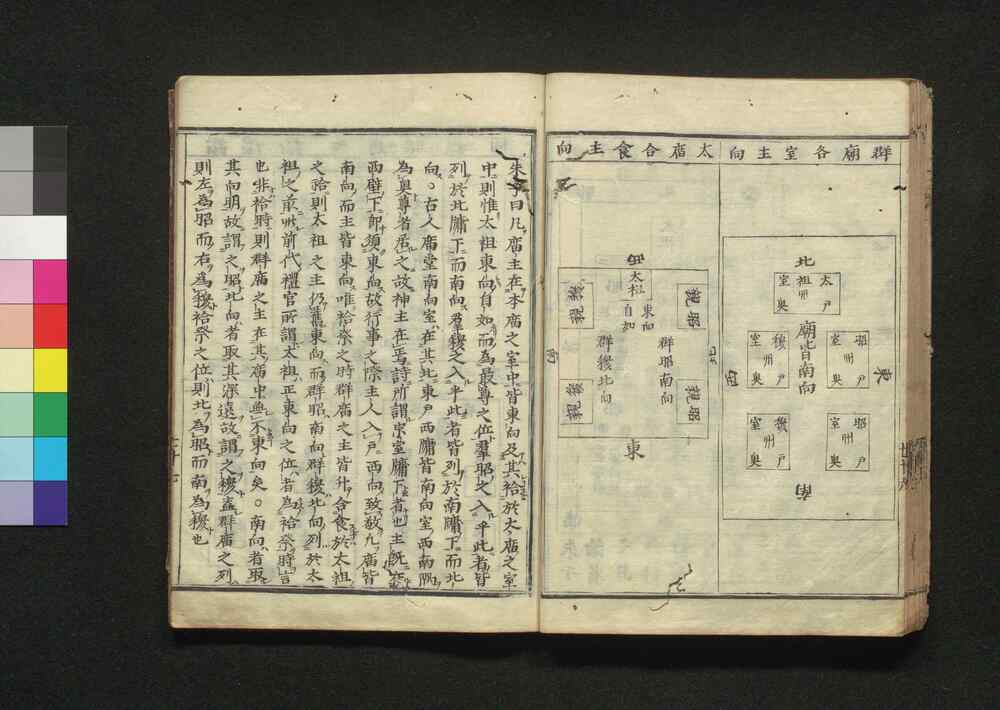 群廟各室主向
太庙合食主向
北
太祖
室
戶
奧
廟皆南向
昭
室
戶
奧
穆
室
戶
奧
昭
室
戶
奧
穆
室
戶
奧
東
西
南
西
太祖
東向
自如
群昭南向
群穆北向
昭
昭
穆
穆
北
南
東
朱子曰凡庙主在本庙之室中皆東向及其祫於太庙之室
中則惟太祖東向自如而為最尊之位羣昭之入乎此者皆
列於北牖下而南向羣穆之入乎此者皆列於南牖下而北
向。古人庙堂南向室在其北東戶西牖皆南向室西南隅
為奧尊者居之故神主在焉詩所謂宗室牖下者也主既在
西壁下即須東向故行事之際主人入戶西向致敬九庙皆
南向而主皆東向唯祫祭之時群庙之主皆升合食於太祖
之時則太祖之主仍舊東向而群昭南向群穆北向列於太
祖之前此前代禮官所謂太祖正東向之位者為祫祭時言
也非祫時則群庙之主在其庙中無不東向矣。南向者取
其向明故謂之昭北向者取其深遠故謂之穆盖群庙之列
則左為昭而右為穆祫祭之位則北為昭而南為穆也